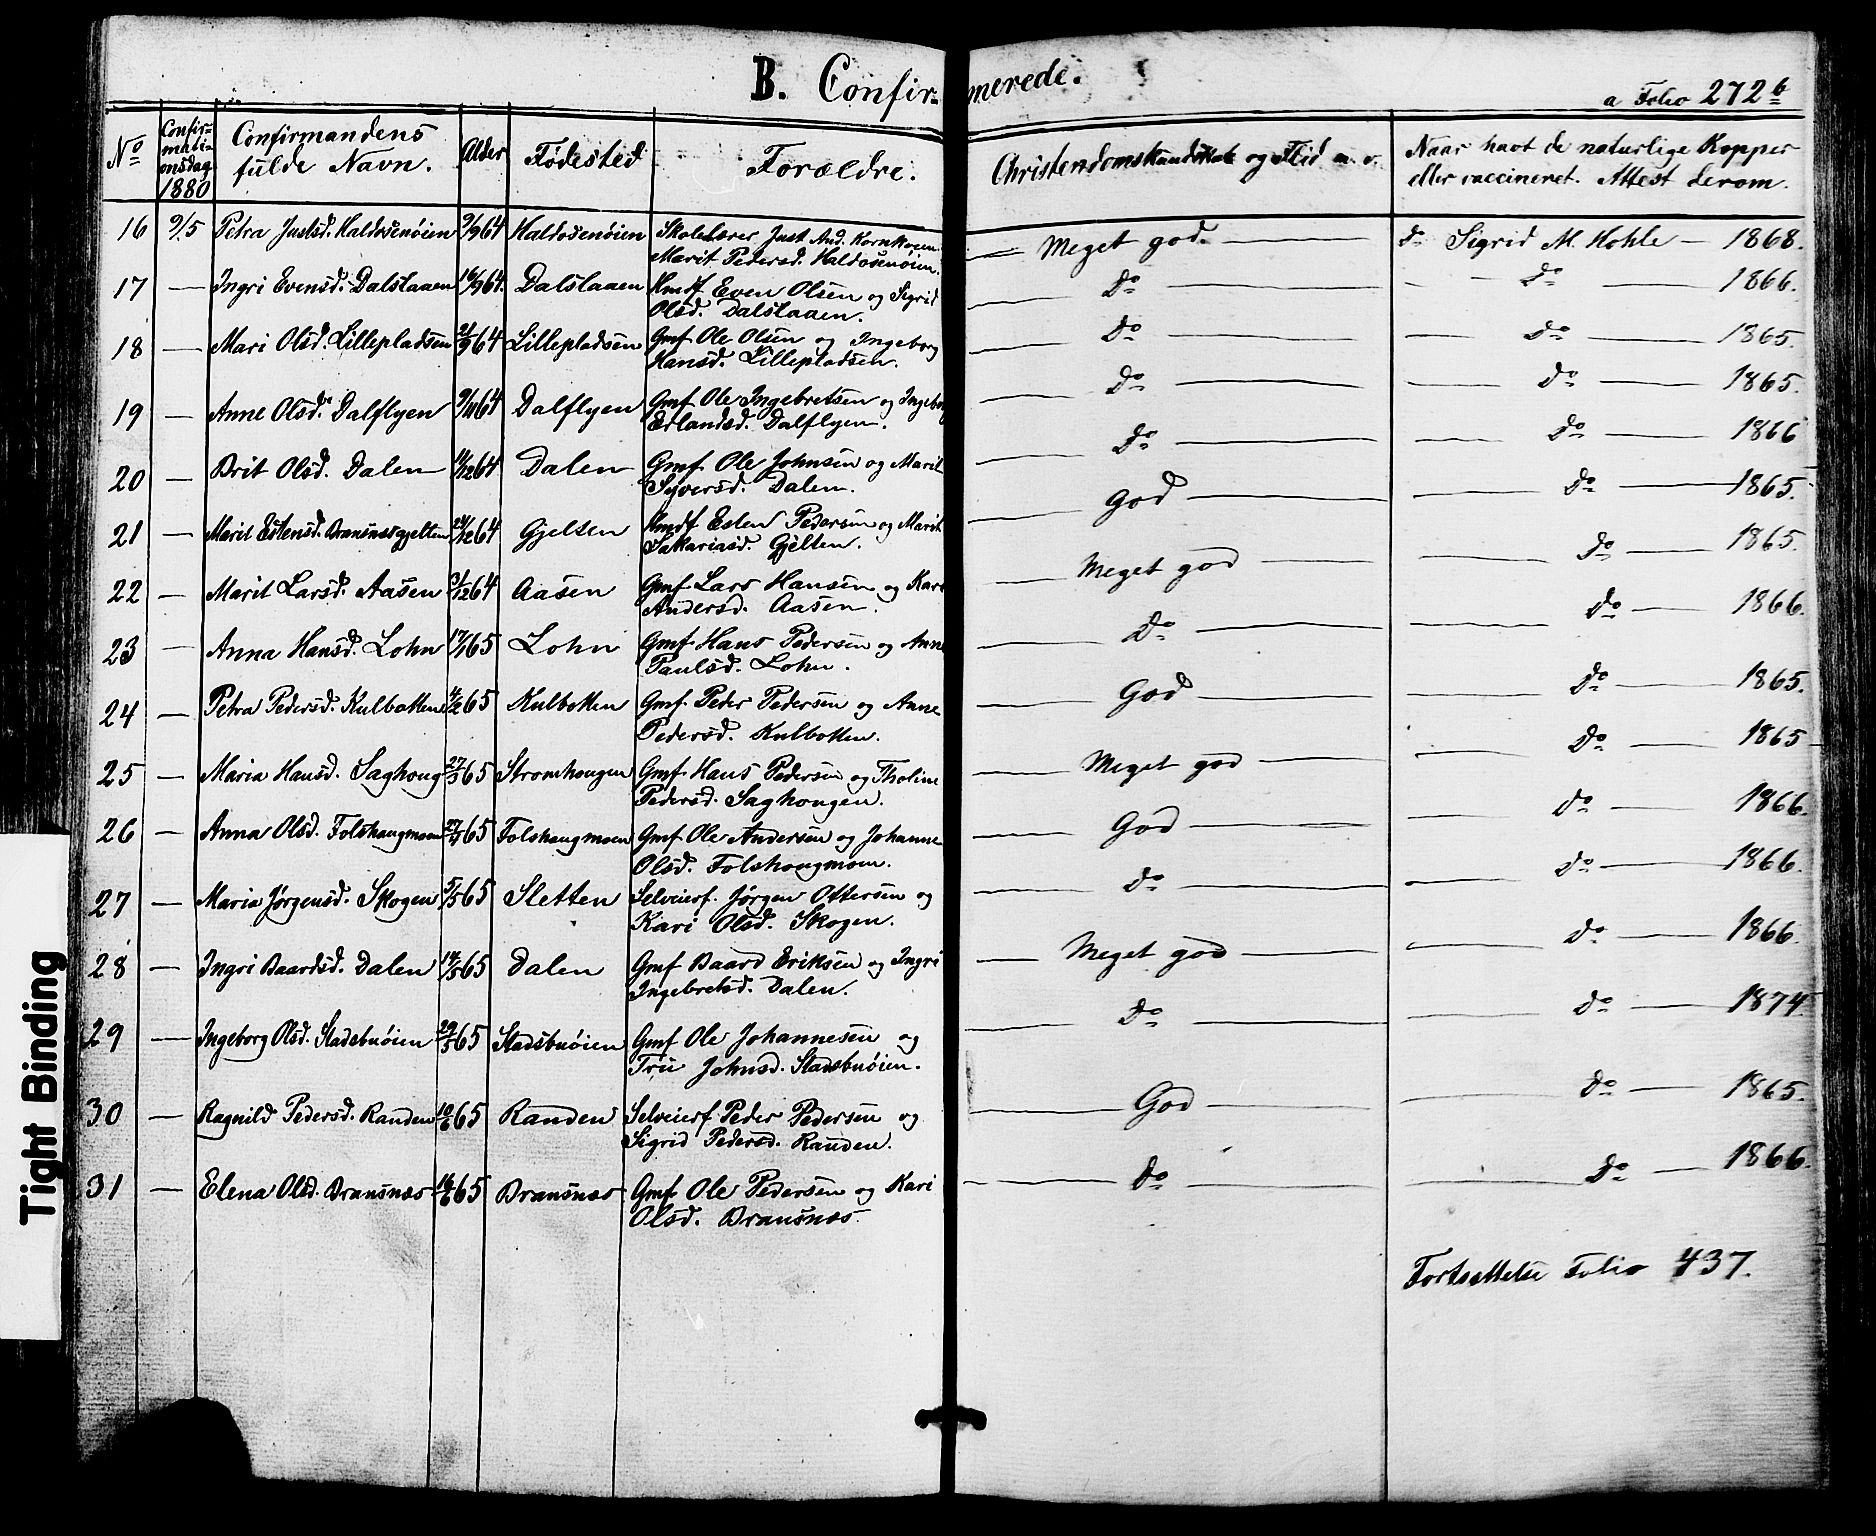 B. Confirmerede.
a Folio 272 b
No
Confirmationsdag 1880
Confirmandens fulde Navn.
Alder
Fødested
Forældre.
Christendomskundskab og Flid m. v.
Naar havt de naturlige Kopper eller vaccineret. Attest derom.
16 9/5 Petra Justsd. Haldosenøien 9/9 64 Haldosenøien Skolelærer Just And. Kornhoem Meget god. do Sigrid M. Hohle 1868.
Marit Pedersd. Haldosenøien.
17 — Ingri Evensd. Dalslaaen 16/9 64. Dalslaaen Hmdf Even Olsen og Sigrid Do — do 1866.
Olsd. Dalslaaen.
18 — Mari Olsd. Lillepladsen 21/9 64 Lillepladsen Gmf Ole Olsen og Ingeborg Do — do 1865.
Hansd. Lillepladsen.
19 — Anne Olsd. Dalflyen 9/11 64 Dalflyen Gmf Ole Ingebretsen og Ingeborg Do — do 1865.
Erlandsd. Dalflyen.
20 — Brit Olsd. Dalen 14/12 64 Dalen Gmf Ole Johnsen og Marit Do — do 1866
Syversd. Dalen.
21 — Marit Estensd. Brænsnesgjelten 24/12 64 Gjelten Hmdf Esten Pedersen og Marit God — do 1865.
Sakariasd. Gjelten.
22 — Marit Larsd. Aasen 31/12 64 Aasen Gmf Lars Hansen og Kari Meget god — do 1865.
Andersd. Aasen.
23 — Anna Hansd. Lohn 17/1 65 Lohn Gmf Hans Pedersen og Anne Do — do 1866.
Paulsd. Lohn.
24 — Petra Pedersd. Kulbotten 4/2 65 Kulbotten Gmf Peder Pedersen og Anne God — do 1865.
Pedersd. Kulbotten.
25 — Maria Hansd. Saghoug 27/3 65 Stromhougen Gmf Hans Pedersen og Tholine Meget god — do 1865
Pedersd. Saghougen.
26 — Anna Olsd. Folshaugmoen 27/4 65 Folshaugmoen Gmf Ole Andersen og Johanne God — do 1866.
Olsd. Folshougmoen.
27 — Maria Jørgensd. Skogen 5/5 65 Sletten Selveierf. Jørgen Ottersen og Do — do 1866.
Kari Olsd. Skogen.
28 — Ingri Baardsd. Dalen 14/5 65 Dalen Gmf Baard Eriksen og Ingri Meget god — do 1866.
Ingebretsd. Dalen.
29 — Ingeborg Olsd. Stadsbuøien 29/5 65 Stadsbuøien Gmf Ole Johannesen og Do — do 1874
Tru Johnsd. Stadsbuøien.
30 — Ragnild Pedersd. Randen 10/6 65 Randen Selveierf Peder Pedersen og God — do 1865.
Sigrid Pedersd. Randen.
31 — Elena Olsd. Brænsnæs 14/6 65 Brænsnæs Gmf Ole Pedersen og Kari Do — do 1866.
Olsd. Brænsnæs.
Fortsættelse Folio 437.
Tight Binding